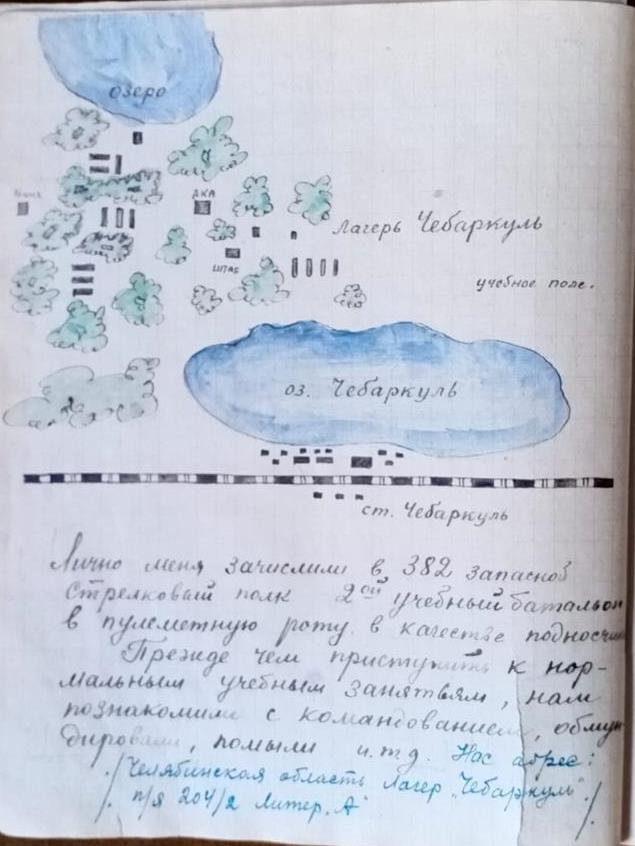 озеро
Баня
ДКА
Лагерь Чебаркуль
штаб
учебное поле.
оз. Чебаркуль
ст. Чебаркуль
Лично меня зачислили в 382 запасной
стрелковый полк 2ой учебный батальон
в пулеметную роту в качестве
Прежде чем приступить к нор-
мальным учебным занятьям, нам
познакомили с командованием, обмун
дировали, помыли и.т.д. Нас адрес:
/Челябинская область Лагер „Чебаркуль".
п/я 204/2 Литер „А" /